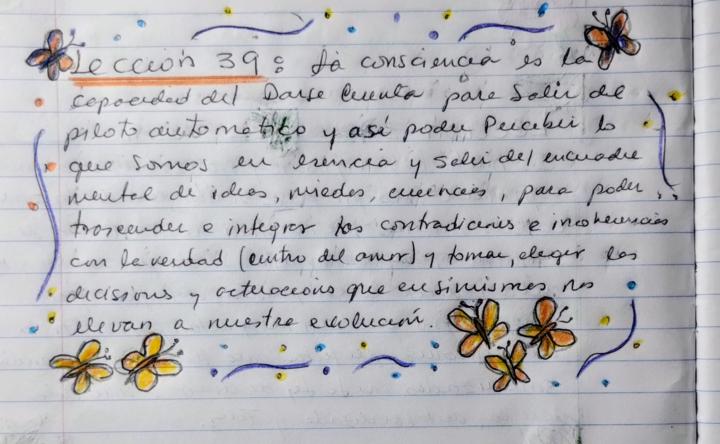 Lección 39: La consciencia es la
capacidad del Darse Cuenta para Salir del
piloto automático y así poder Percibir lo
que Somos en esencia y Salir del encuadre
mental de ideas, miedos, creencias, para poder
trascender e integrar las contradiciones e incoherencias
con la verdad (centro del amor) y tomar, elegir las
decisions y actuaciones que en si mismas nos
llevan a nuestra evolución.